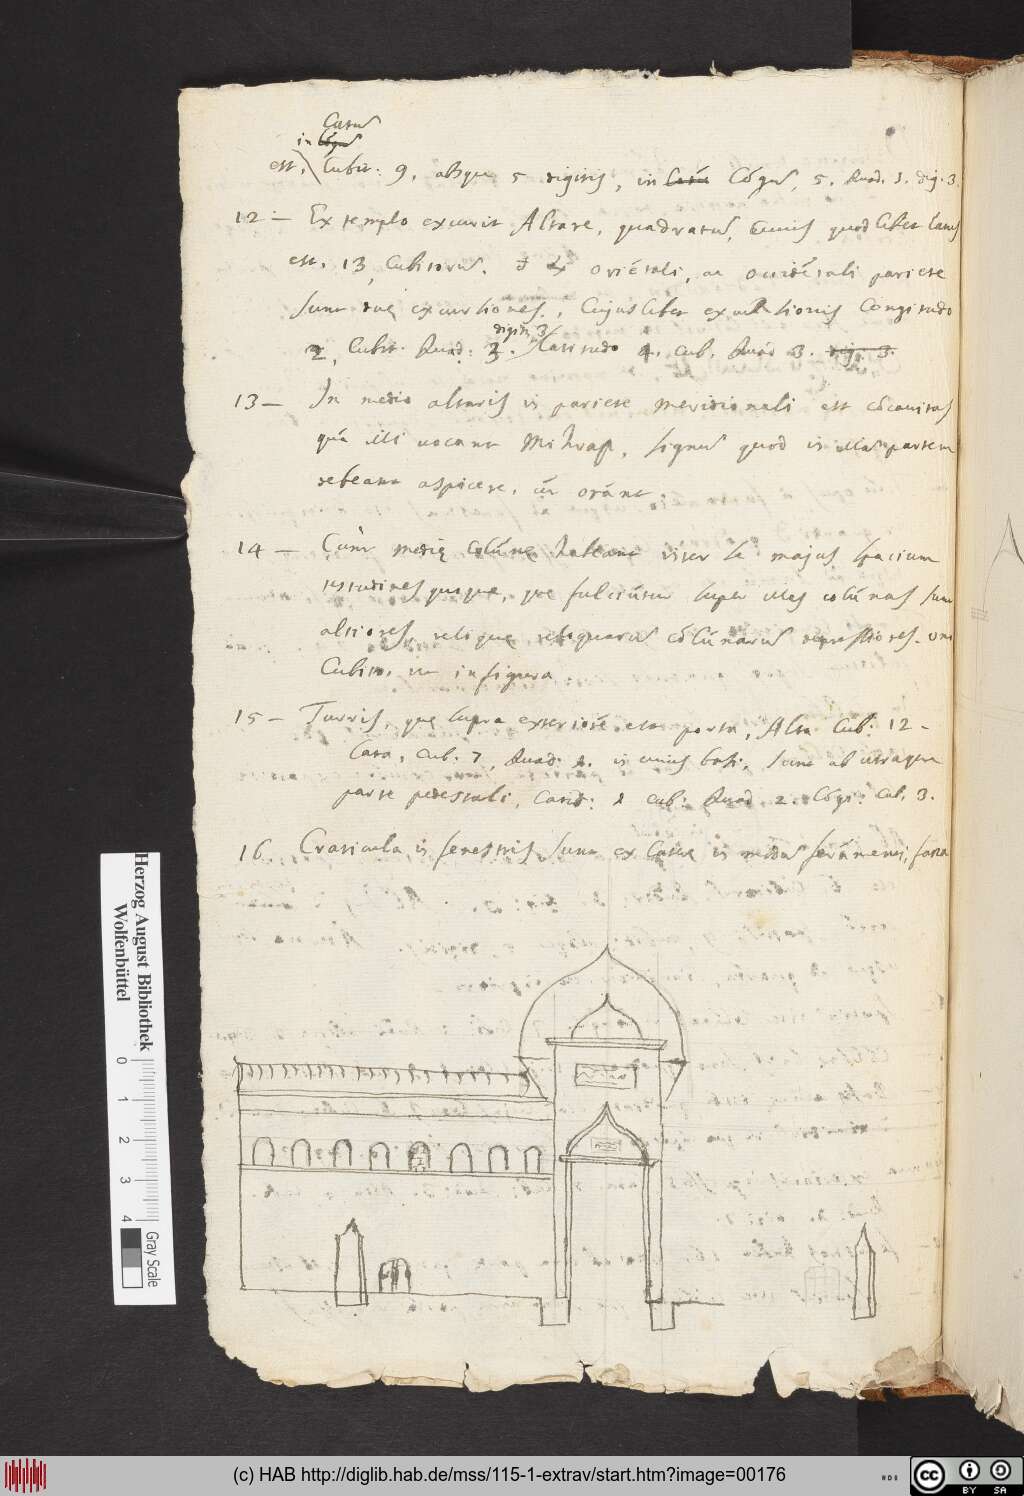 in Latum
est. Cubit: 9, absque 5 digitis, in Lõgũ, 5. Quad. 3. dig. 3.
12 — Ex templo excurrit Altare, quadratũ, cuius quodlibet latus
est. 13, Cubitorũ. oriẽtali, ac occidẽtali pariete
sunt duę excursiones, cujuslibet excursionis Longitudo
2, Cubit. Quad: 3. digiti 3/ Latitudo 4. cub. Quad 3. dig. 3.
13 — In medio altaris in pariete meridionali est cõcauitas
quã illi uocant Mihrap, signũ quod in illã partem
debeant aspicere, cũ orãnt.
14 — Cùm medię colũnę habeant inter se majus spacium
testudines quoque, quę fulciũtur super illas colũnas sunt
altiores, reliquę reliquarũ colũnarũ depressiores. uno
Cubito. ut in figura
15 — Turris, quę supra exteriorẽ est porta, Alta Cub: 12 -
Lata, Cub: 7, Quad: 2. in cuius basi, sunt ab utraque
parte pedestali, Latid: 2 cub: Quad 2. Lõgi: Cub. 3.
16 Craticula in fenestris sunt ex in modũ facta
Herzog August Bibliothek
Wolfenbüttel
0 1 2 3 4
Gray Scale
(c) HAB http://diglib.hab.de/mss/115-1-extrav/start.htm?image=00176
cc BY SA